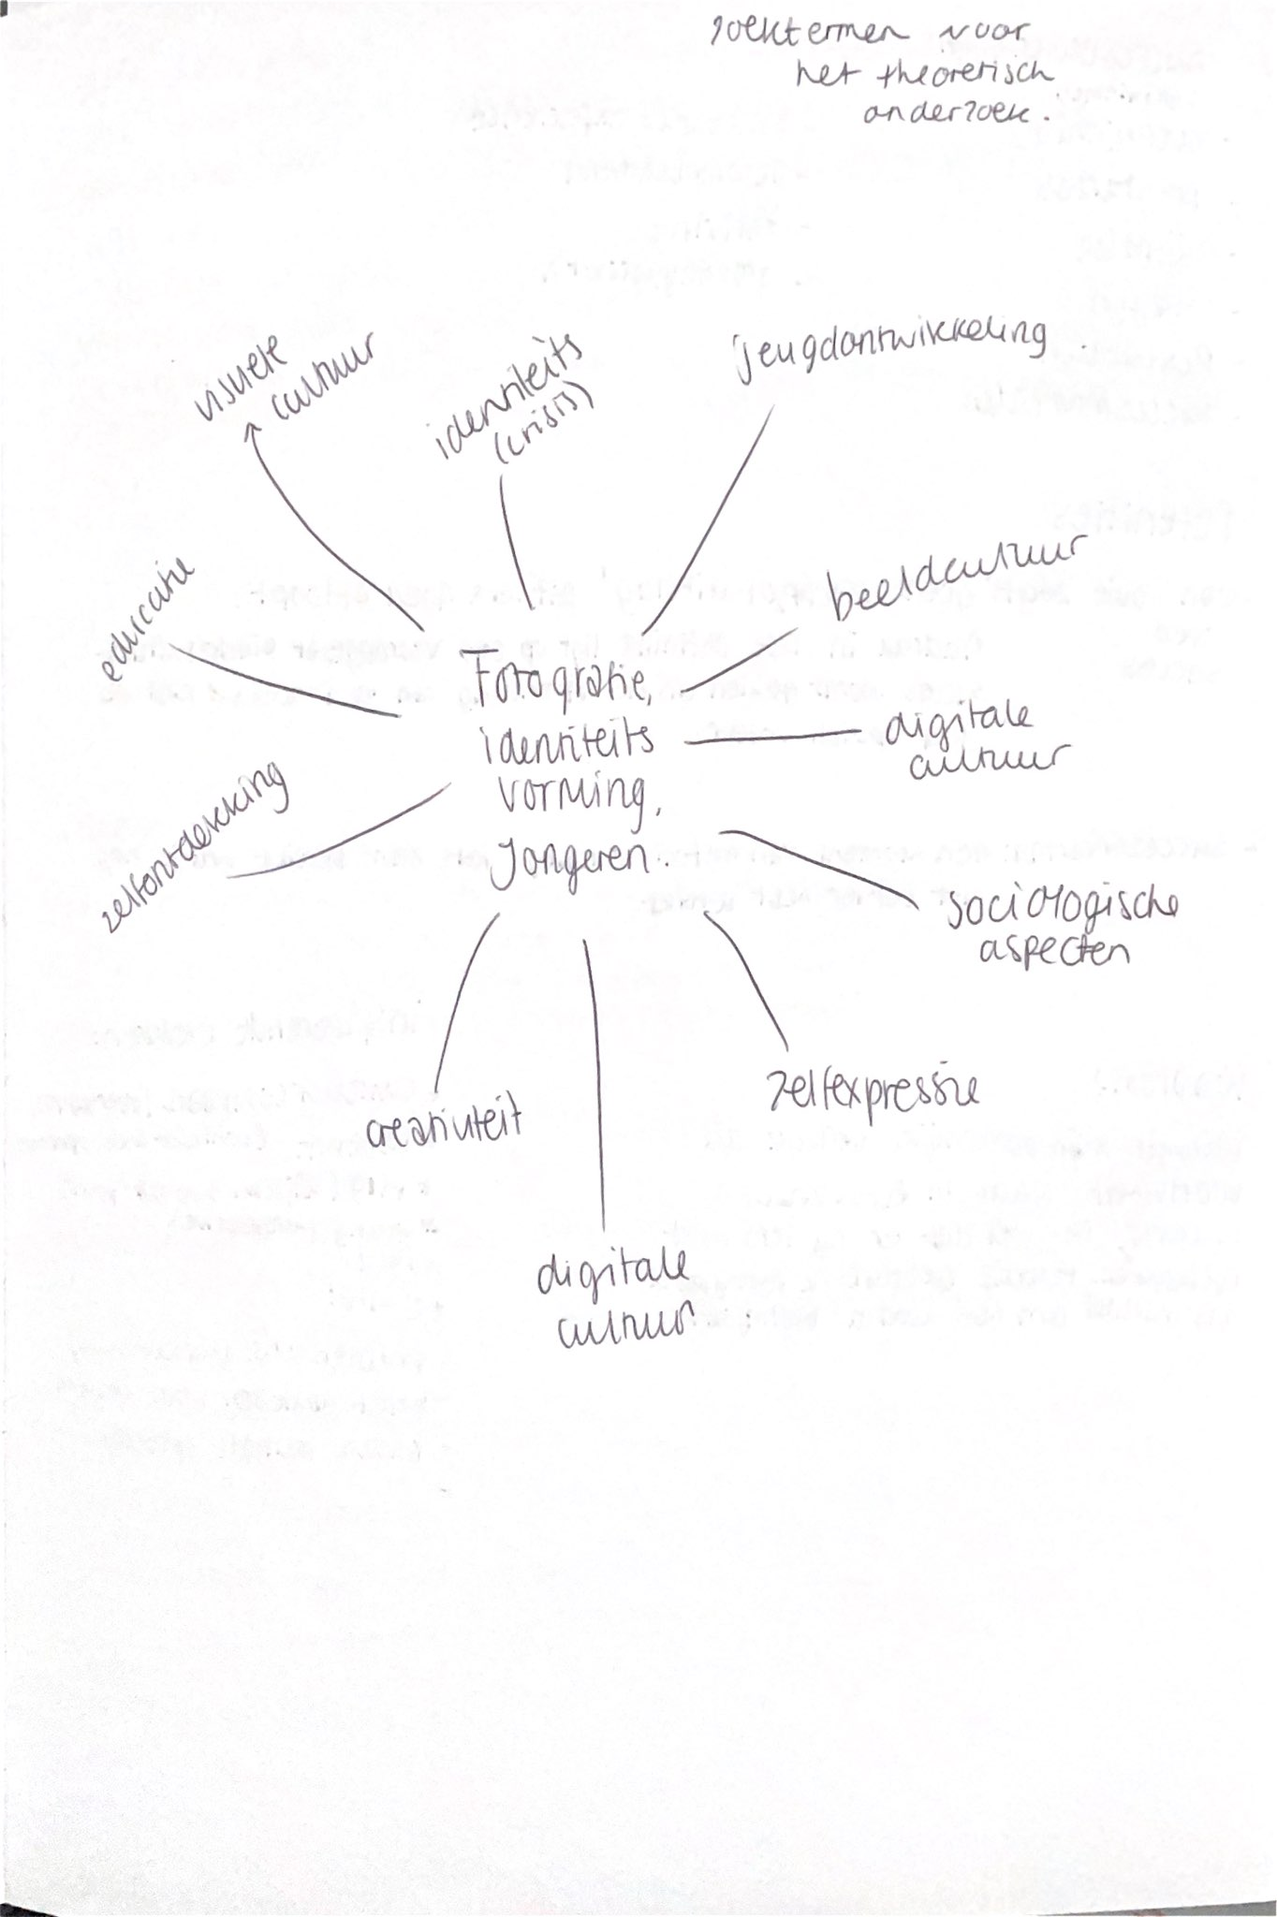 zoektermen voor
het theoretisch
onderzoek.
visuele
cultuur
identiteits
(crisis)
jeugdontwikkeling
educatie
beeldcultuur
Fotografie,
identiteits
vorming,
Jongeren.
digitale
cultuur
zelfontdekking
sociologische
aspecten
creativiteit
zelfexpressie
digitale
cultuur